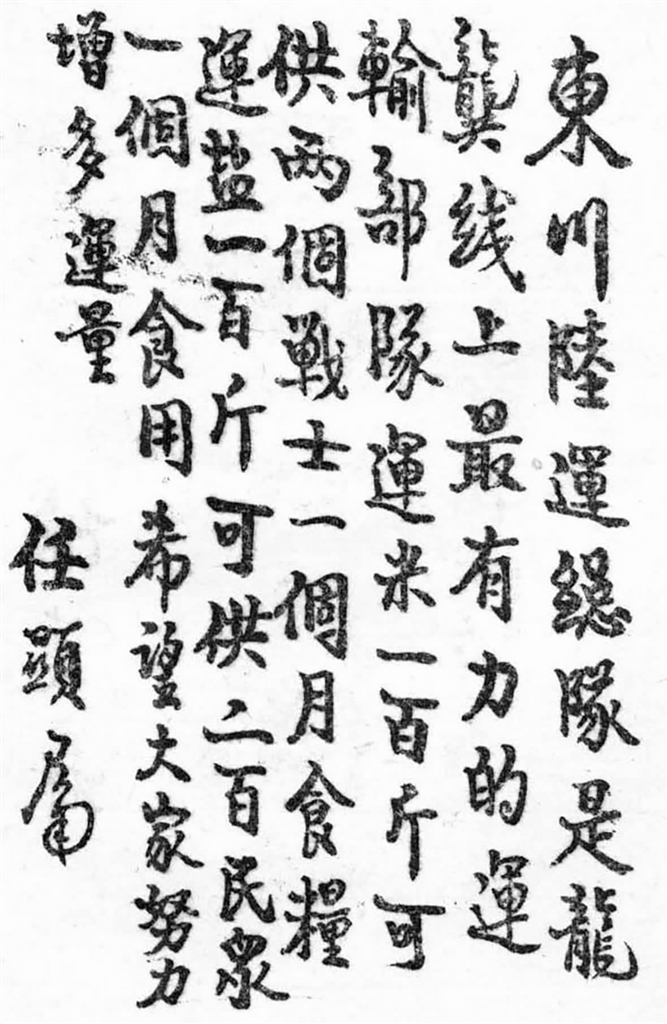 東川陸運總隊是龍
龔线上最有力的運
輸部隊運米一百斤可
供两個戦士一個月食糧
運盐一百斤可供二百民眾
一個月食用希望大家努力
增多運量
任顯羣